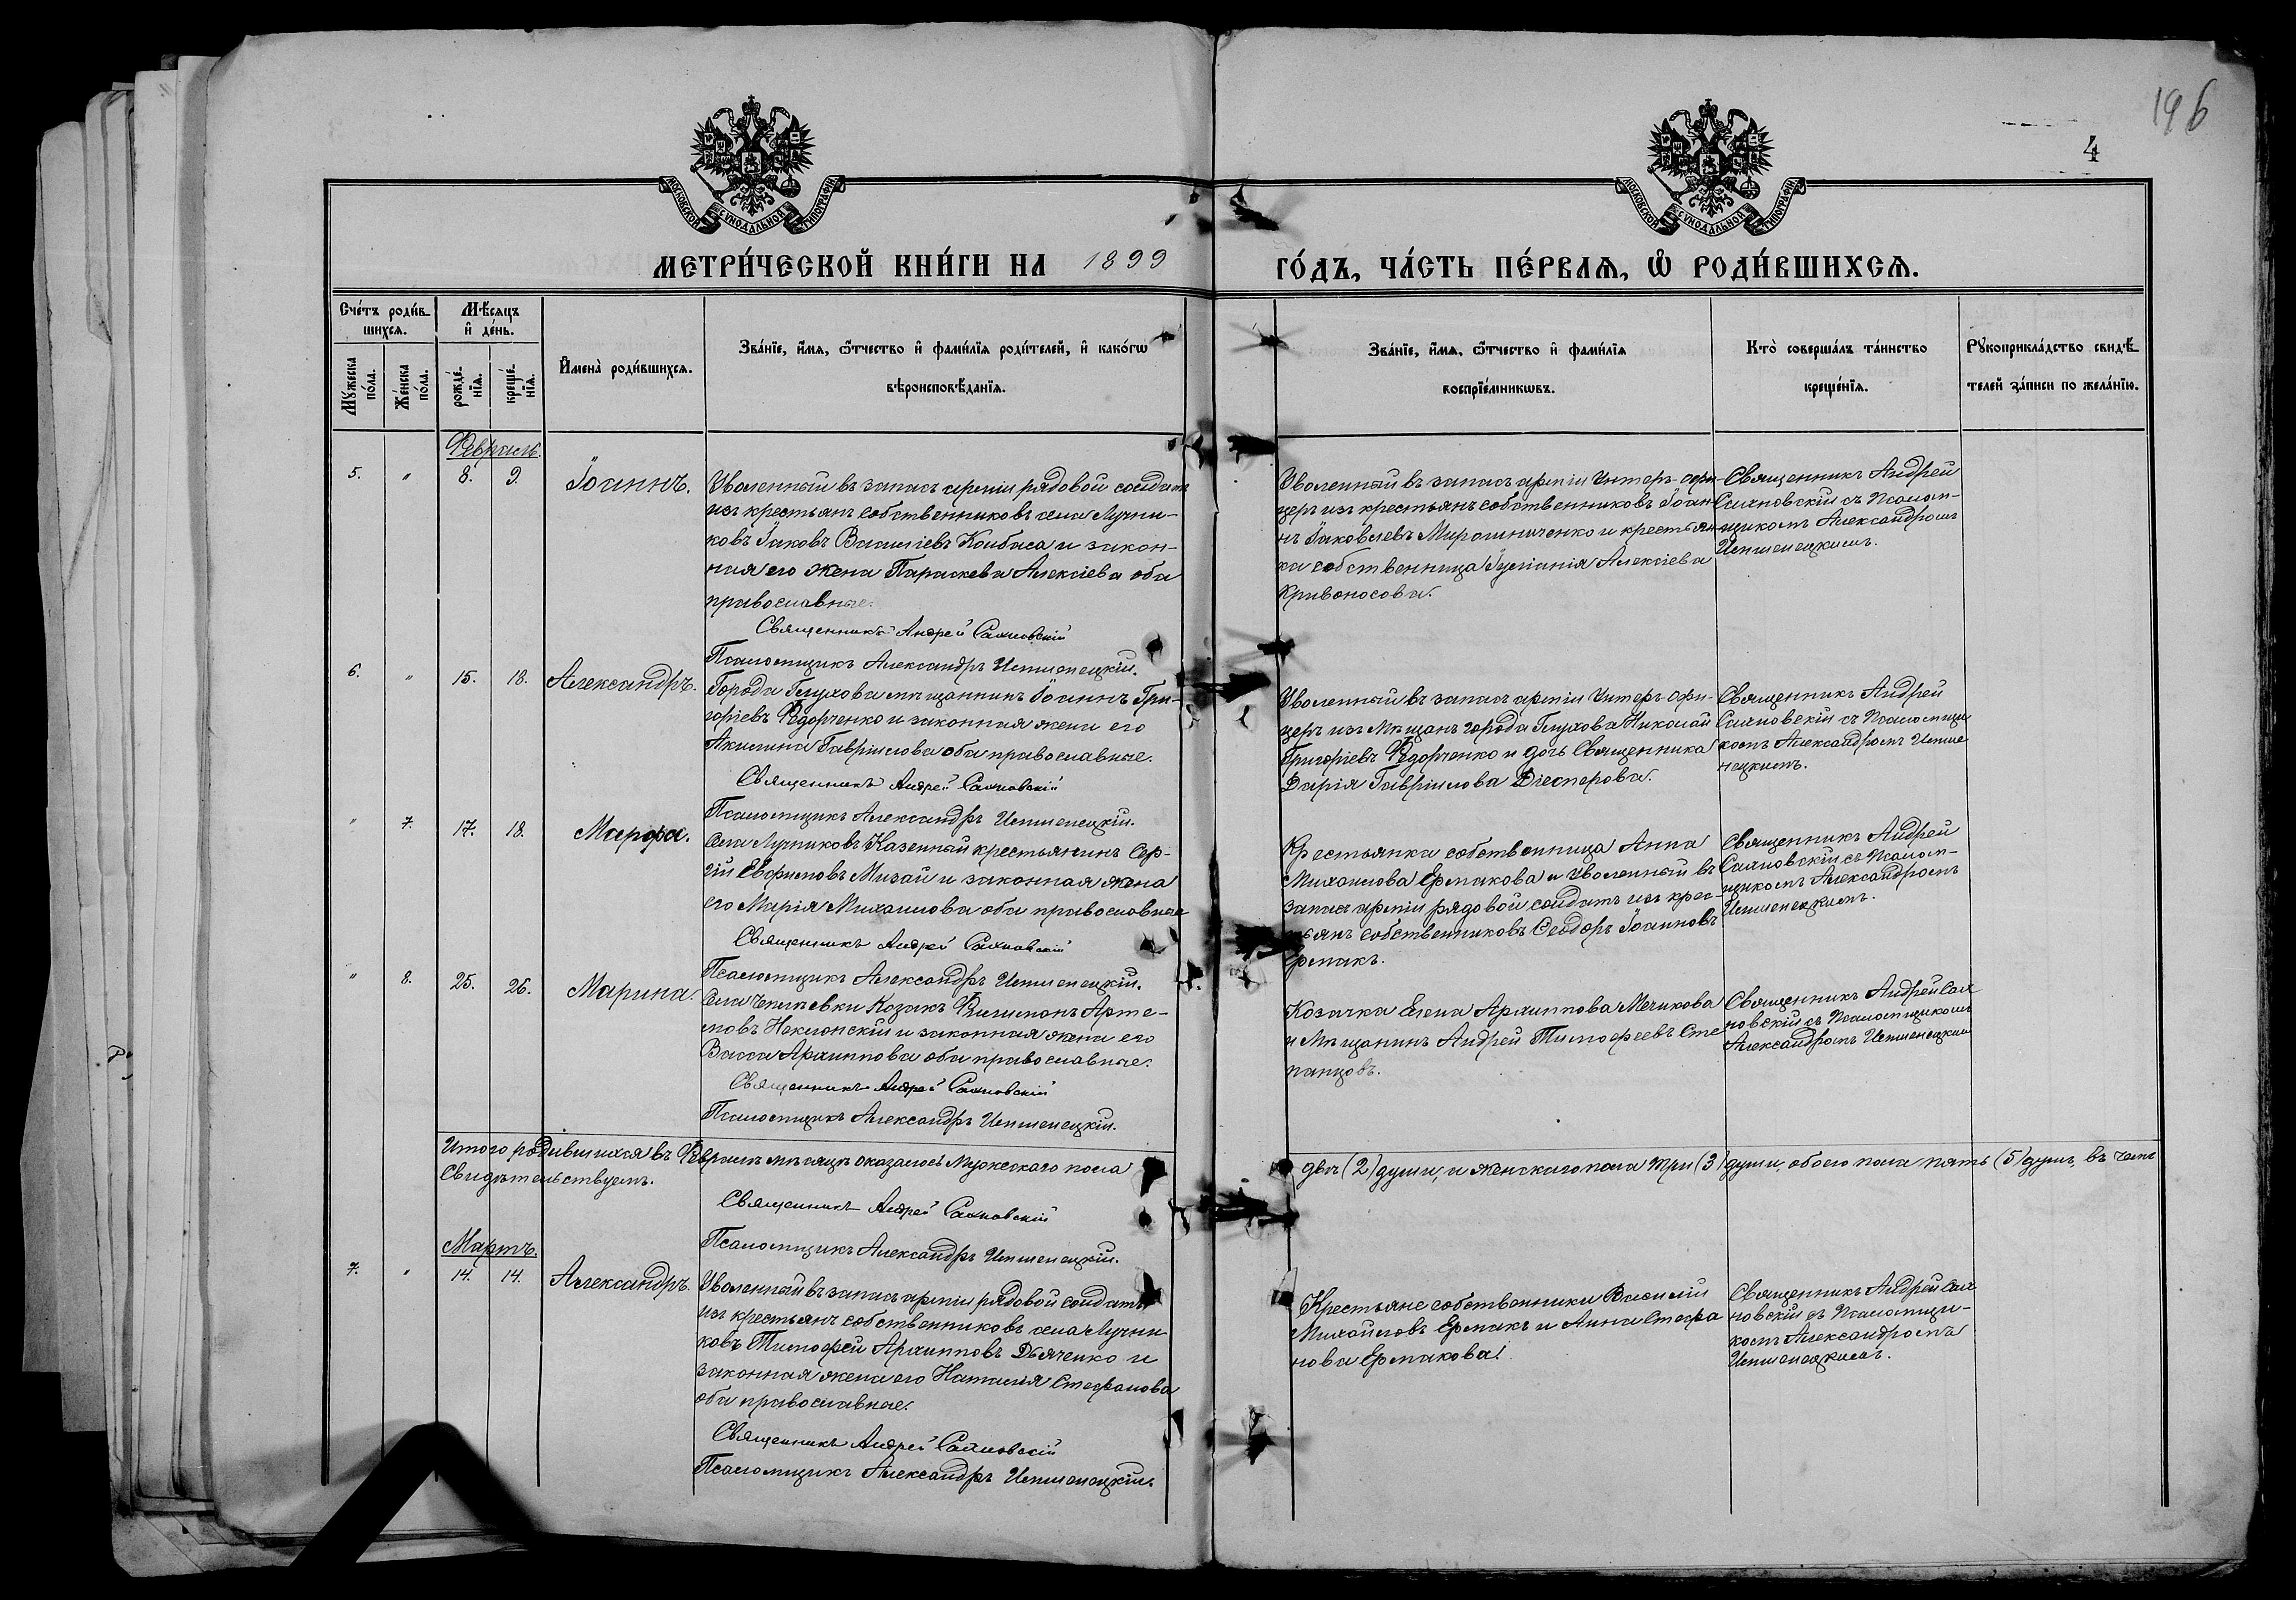 196
4
МОСКОВСКОЙ СѴНОДАЛЬНОЙ ТИПОГРАФІИ
МОСКОВСКОЙ СѴНОДАЛЬНОЙ ТИПОГРАФІИ
МЕТРИ́ЧЕСКОЙ КНИ́ГИ НА 1899 ГО́ДЪ, ЧА́СТЬ ПЕ́РВАѦ, Ѽ РОДИ́ВШИХСѦ.
Сче́тъ роди́в-
шихсѧ.
Мѣ́сяцъ
и҆ де́нь.
Мꙋ́жеска
по́ла.
Же́нска
по́ла.
рожде́-
нїѧ.
креще́-
нїѧ.
И҆мена̀ роди́вшихсѧ.
Зва́нїе, и҆́мѧ, ѻ҆́тчество и҆ фами́лїѧ роди́телей, и҆ како́гѡ
вѣроисповѣ́данїѧ.
Зва́нїе, и҆́мѧ, ѻ҆́тчество и҆ фами́лїѧ
воспрїе́мникѡвъ.
Кто̀ соверша́лъ та́инство
креще́нїѧ.
Рꙋкоприкла́дство свидѣ́-
телей за́писи по жела́нїю.
Февраль.
5. " 8. 9. Іоаннъ.
Уволенный въ запасъ арміи рядовой солдатъ
изъ крестьянъ собственниковъ села Лучни-
ковъ Іаковъ Василіевъ Колбаса и закон-
ная его жена Параскева Алексіева оба
православные.
Священникъ Андрей Сахновскій
Псаломщикъ Александръ
Уволенный въ запасъ арміи Унтеръ-офи-
церъ изъ крестьянъ собственниковъ Іоан-
нъ Іаковлевъ Мирошниченко и крестьян-
ка собственница Іуліанія Алексіева
Кривоносова.
Священникъ Андрей
Сахновскій съ Псалом-
щикомъ Александромъ
6. " 15. 18. Александръ.
Города Глухова мѣщанинъ Іоаннъ Гри-
горіевъ Федорченко и законная жена его
Акилина Гавріилова оба православные.
Священникъ Андрей Сахновскій
Псаломщикъ Александръ
Уволенный въ запасъ арміи Унтеръ-Офи-
церъ изъ Мѣщанъ города Глухова Николай
Григоріевъ Федорченко и дочь Священника
Дарія Гавріилова Діесперова.
Священникъ Андрей
Сахновскій съ Псаломщи
комъ Александромъ
" 7. 17. 18. Марфа.
Села Лучниковъ Казенный крестьянинъ Сер-
гій Евфимовъ Мизай и законная жена
его Марія Михаилова оба православные
Священникъ Андрей Сахновскій
Псаломщикъ Александръ
Крестьянка собственница Анна
Михаилова Ермакова и Уволенный въ
запасъ арміи рядовой солдатъ изъ крес-
тьянъ собственниковъ Ѳеодоръ Іоанновъ
Ермакъ.
Священникъ Андрей
Сахновскій съ Псалом-
щикомъ Александромъ
" 8. 25. 26. Марина.
Села Козакъ Филимонъ Арте-
мовъ и законная жена его
Васса Архиппова оба православные.
Священникъ Андрей Сахновскій
Псаломщикъ Александръ
Козачка Елена Архиппова Мечикова
и Мѣщанинъ Андрей Тимофеевъ Сте
панцовъ.
Священникъ Андрей Сах
новскій съ Псаломщикомъ
Александромъ
Итого родившихся въ Февралѣ мѣсяцѣ оказалось Мужескаго пола двѣ (2) души, а женскаго пола три (3) души, обоего пола пять (5) душъ, въ чемъ
Свидѣтельствуемъ.
Священникъ Андрей Сахновскій
Псаломщикъ Александръ
Мартъ.
7. " 14. 14. Александръ.
Уволенный въ запасъ арміи рядовой солдатъ
изъ крестьянъ собственниковъ села Лучни
ковъ Тимофей Архипповъ Дьяченко и
законная жена его Наталія Стефанова
оба православные.
Священникъ Андрей Сахновскій
Псаломщикъ Александръ
Крестьяне собственники Василій
Михайловъ Ермакъ и Анна Стефа
нова Ермакова.
Священникъ Андрей Сах
новскій съ Псаломщи-
комъ Александромъ